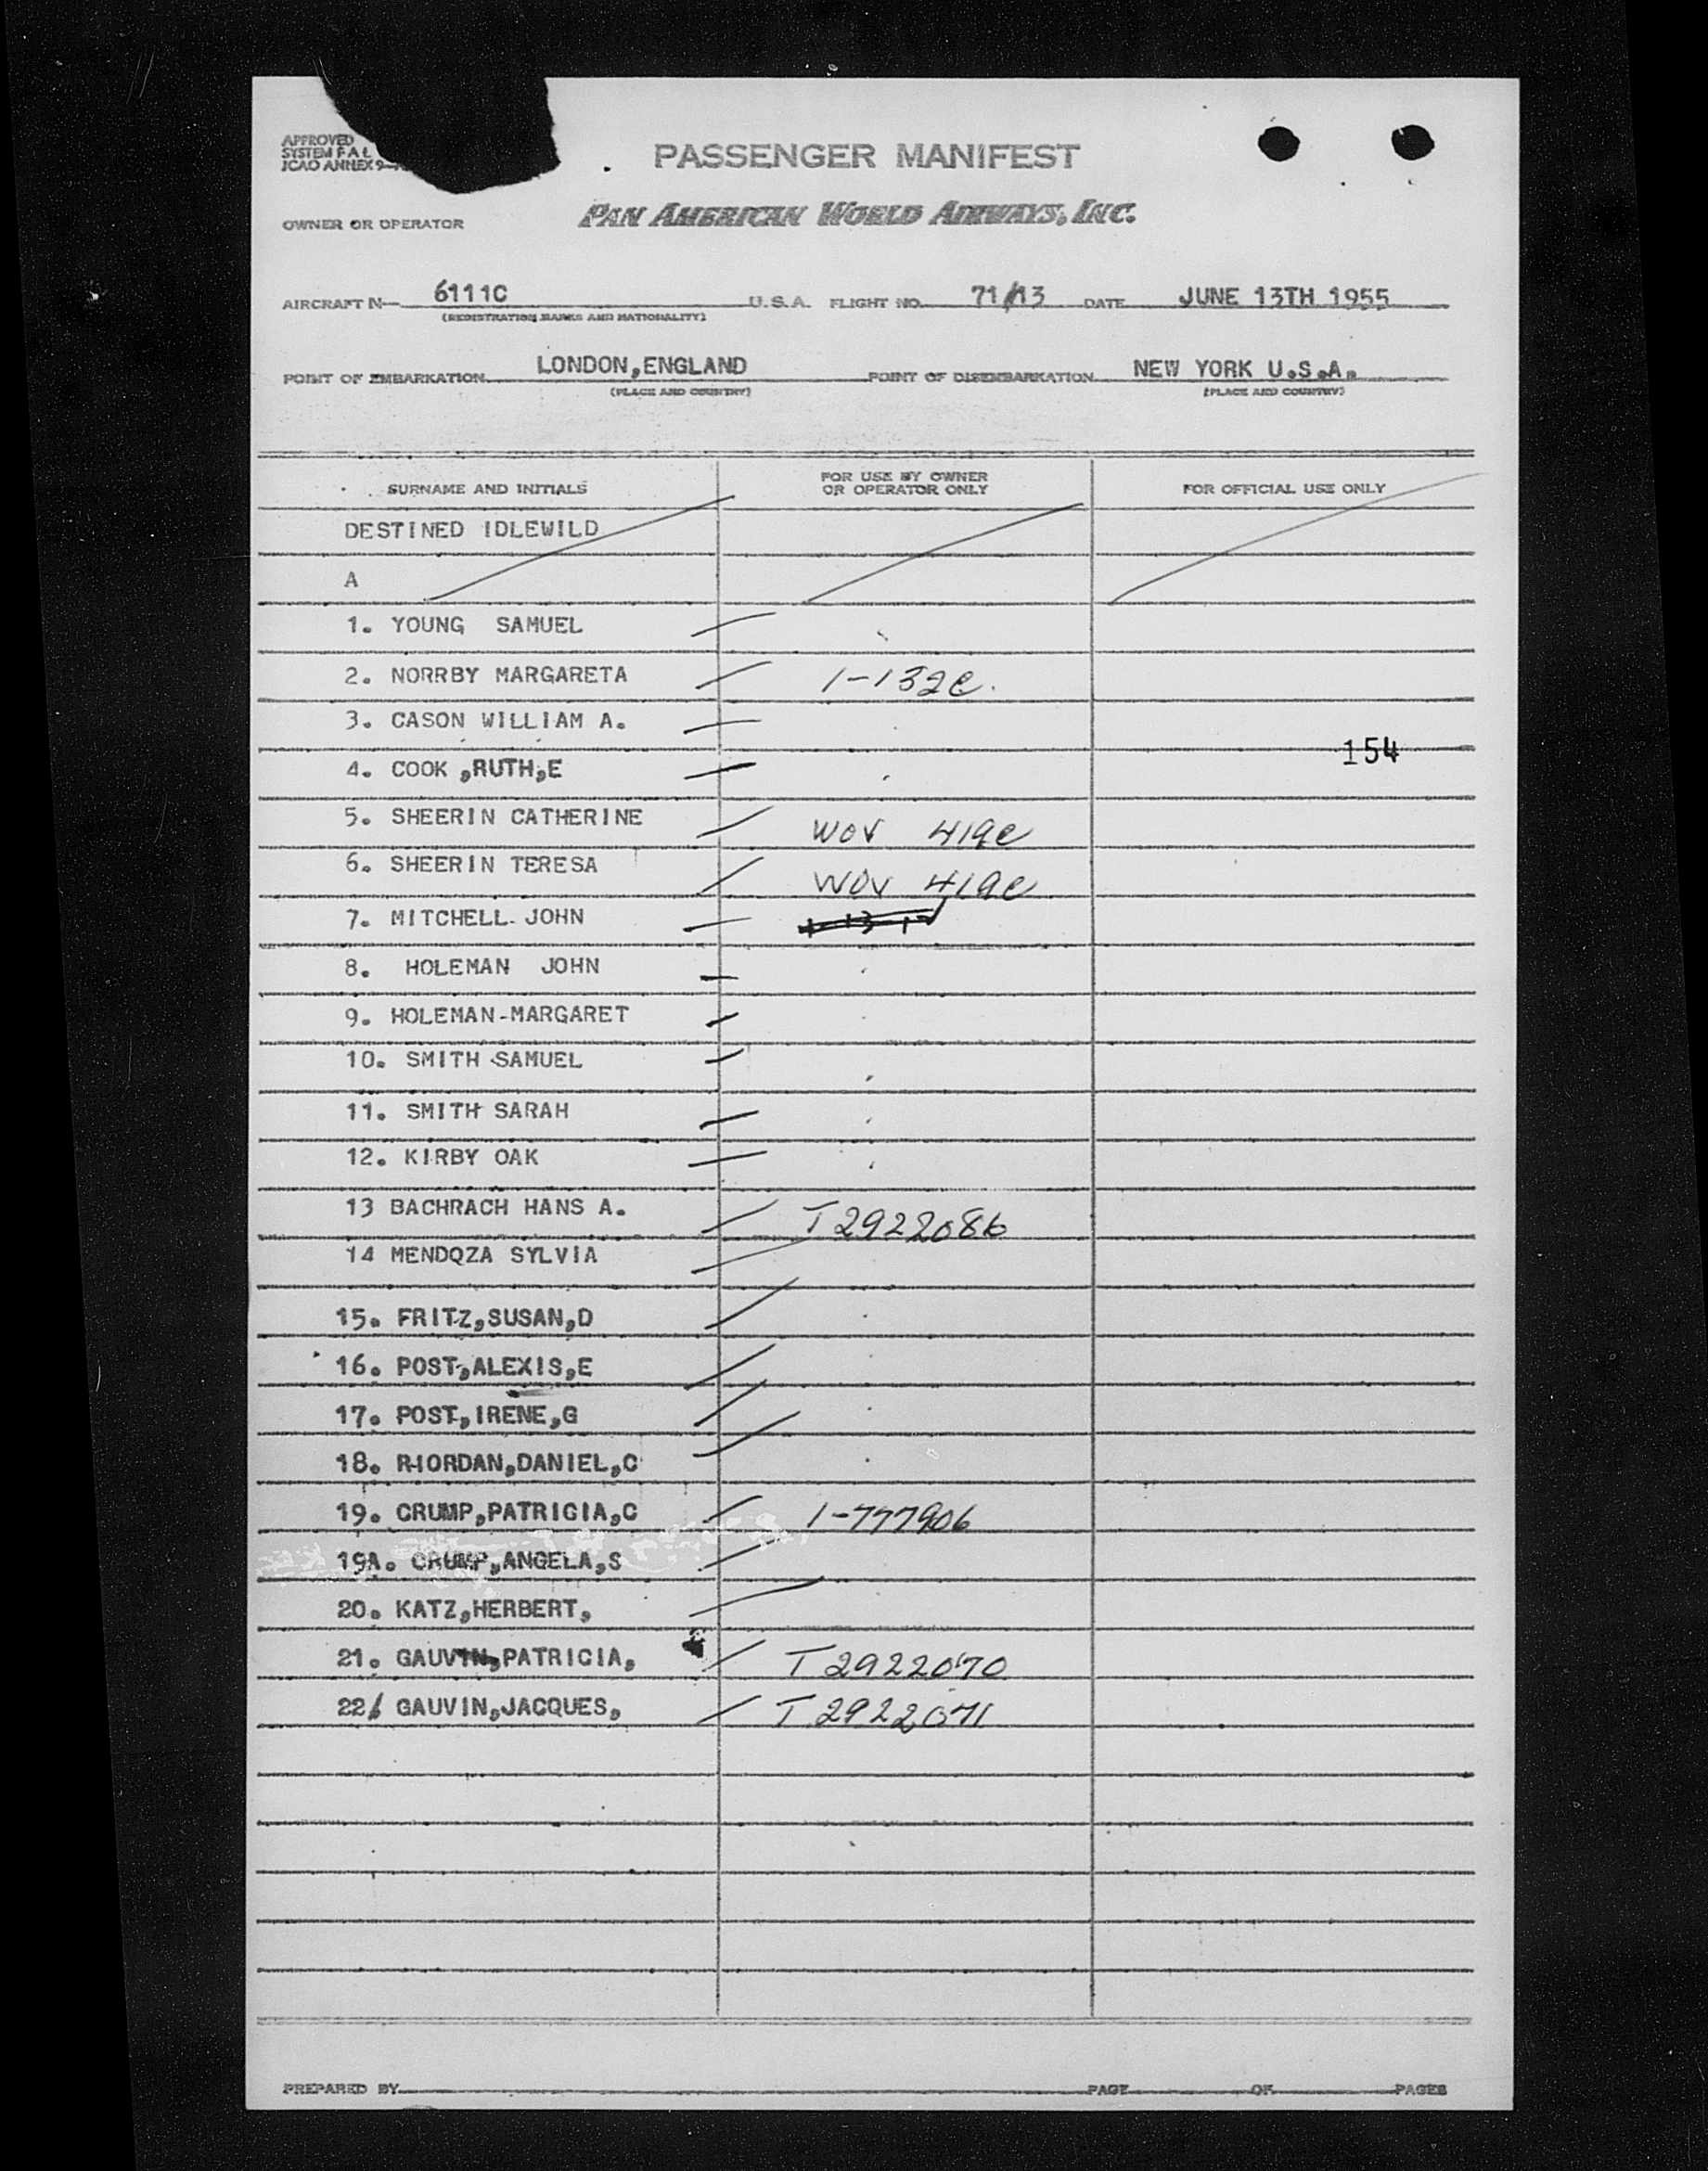 APPROVED
SYSTEM F A L
ICAO ANNEX 9
PASSENGER MANIFEST
OWNER OR OPERATOR PAN AMERICAN WORLD AIRWAYS, INC.
AIRCRAFT N— 6111C U.S.A. FLIGHT NO. 71/13 DATE JUNE 13TH 1955
(REGISTRATION MARKS AND NATIONALITY)
POINT OF EMBARKATION LONDON,ENGLAND POINT OF DISEMBARKATION NEW YORK U.S.A.
(PLACE AND COUNTRY) (PLACE AND COUNTRY)
SURNAME AND INITIALS FOR USE BY OWNER OR OPERATOR ONLY FOR OFFICIAL USE ONLY
DESTINED IDLEWILD
A
1. YOUNG SAMUEL
2. NORRBY MARGARETA 1-132e.
3. CASON WILLIAM A.
154
4. COOK ,RUTH,E
5. SHEERIN CATHERINE WOV 419e
6. SHEERIN TERESA WOV 419e
7. MITCHELL JOHN
8. HOLEMAN JOHN
9. HOLEMAN-MARGARET
10. SMITH SAMUEL
11. SMITH SARAH
12. KIRBY OAK
13 BACHRACH HANS A. T2922086
14 MENDOZA SYLVIA
15. FRITZ,SUSAN,D
16. POST,ALEXIS,E
17. POST,IRENE,G
18. RIORDAN,DANIEL,C
19. CRUMP,PATRICIA,C 1-777906
19A. CRUMP,ANGELA,S
20. KATZ,HERBERT,
21. GAUVIN,PATRICIA, T2922070
22/ GAUVIN,JACQUES, T2922071
PREPARED BY PAGE OF PAGES